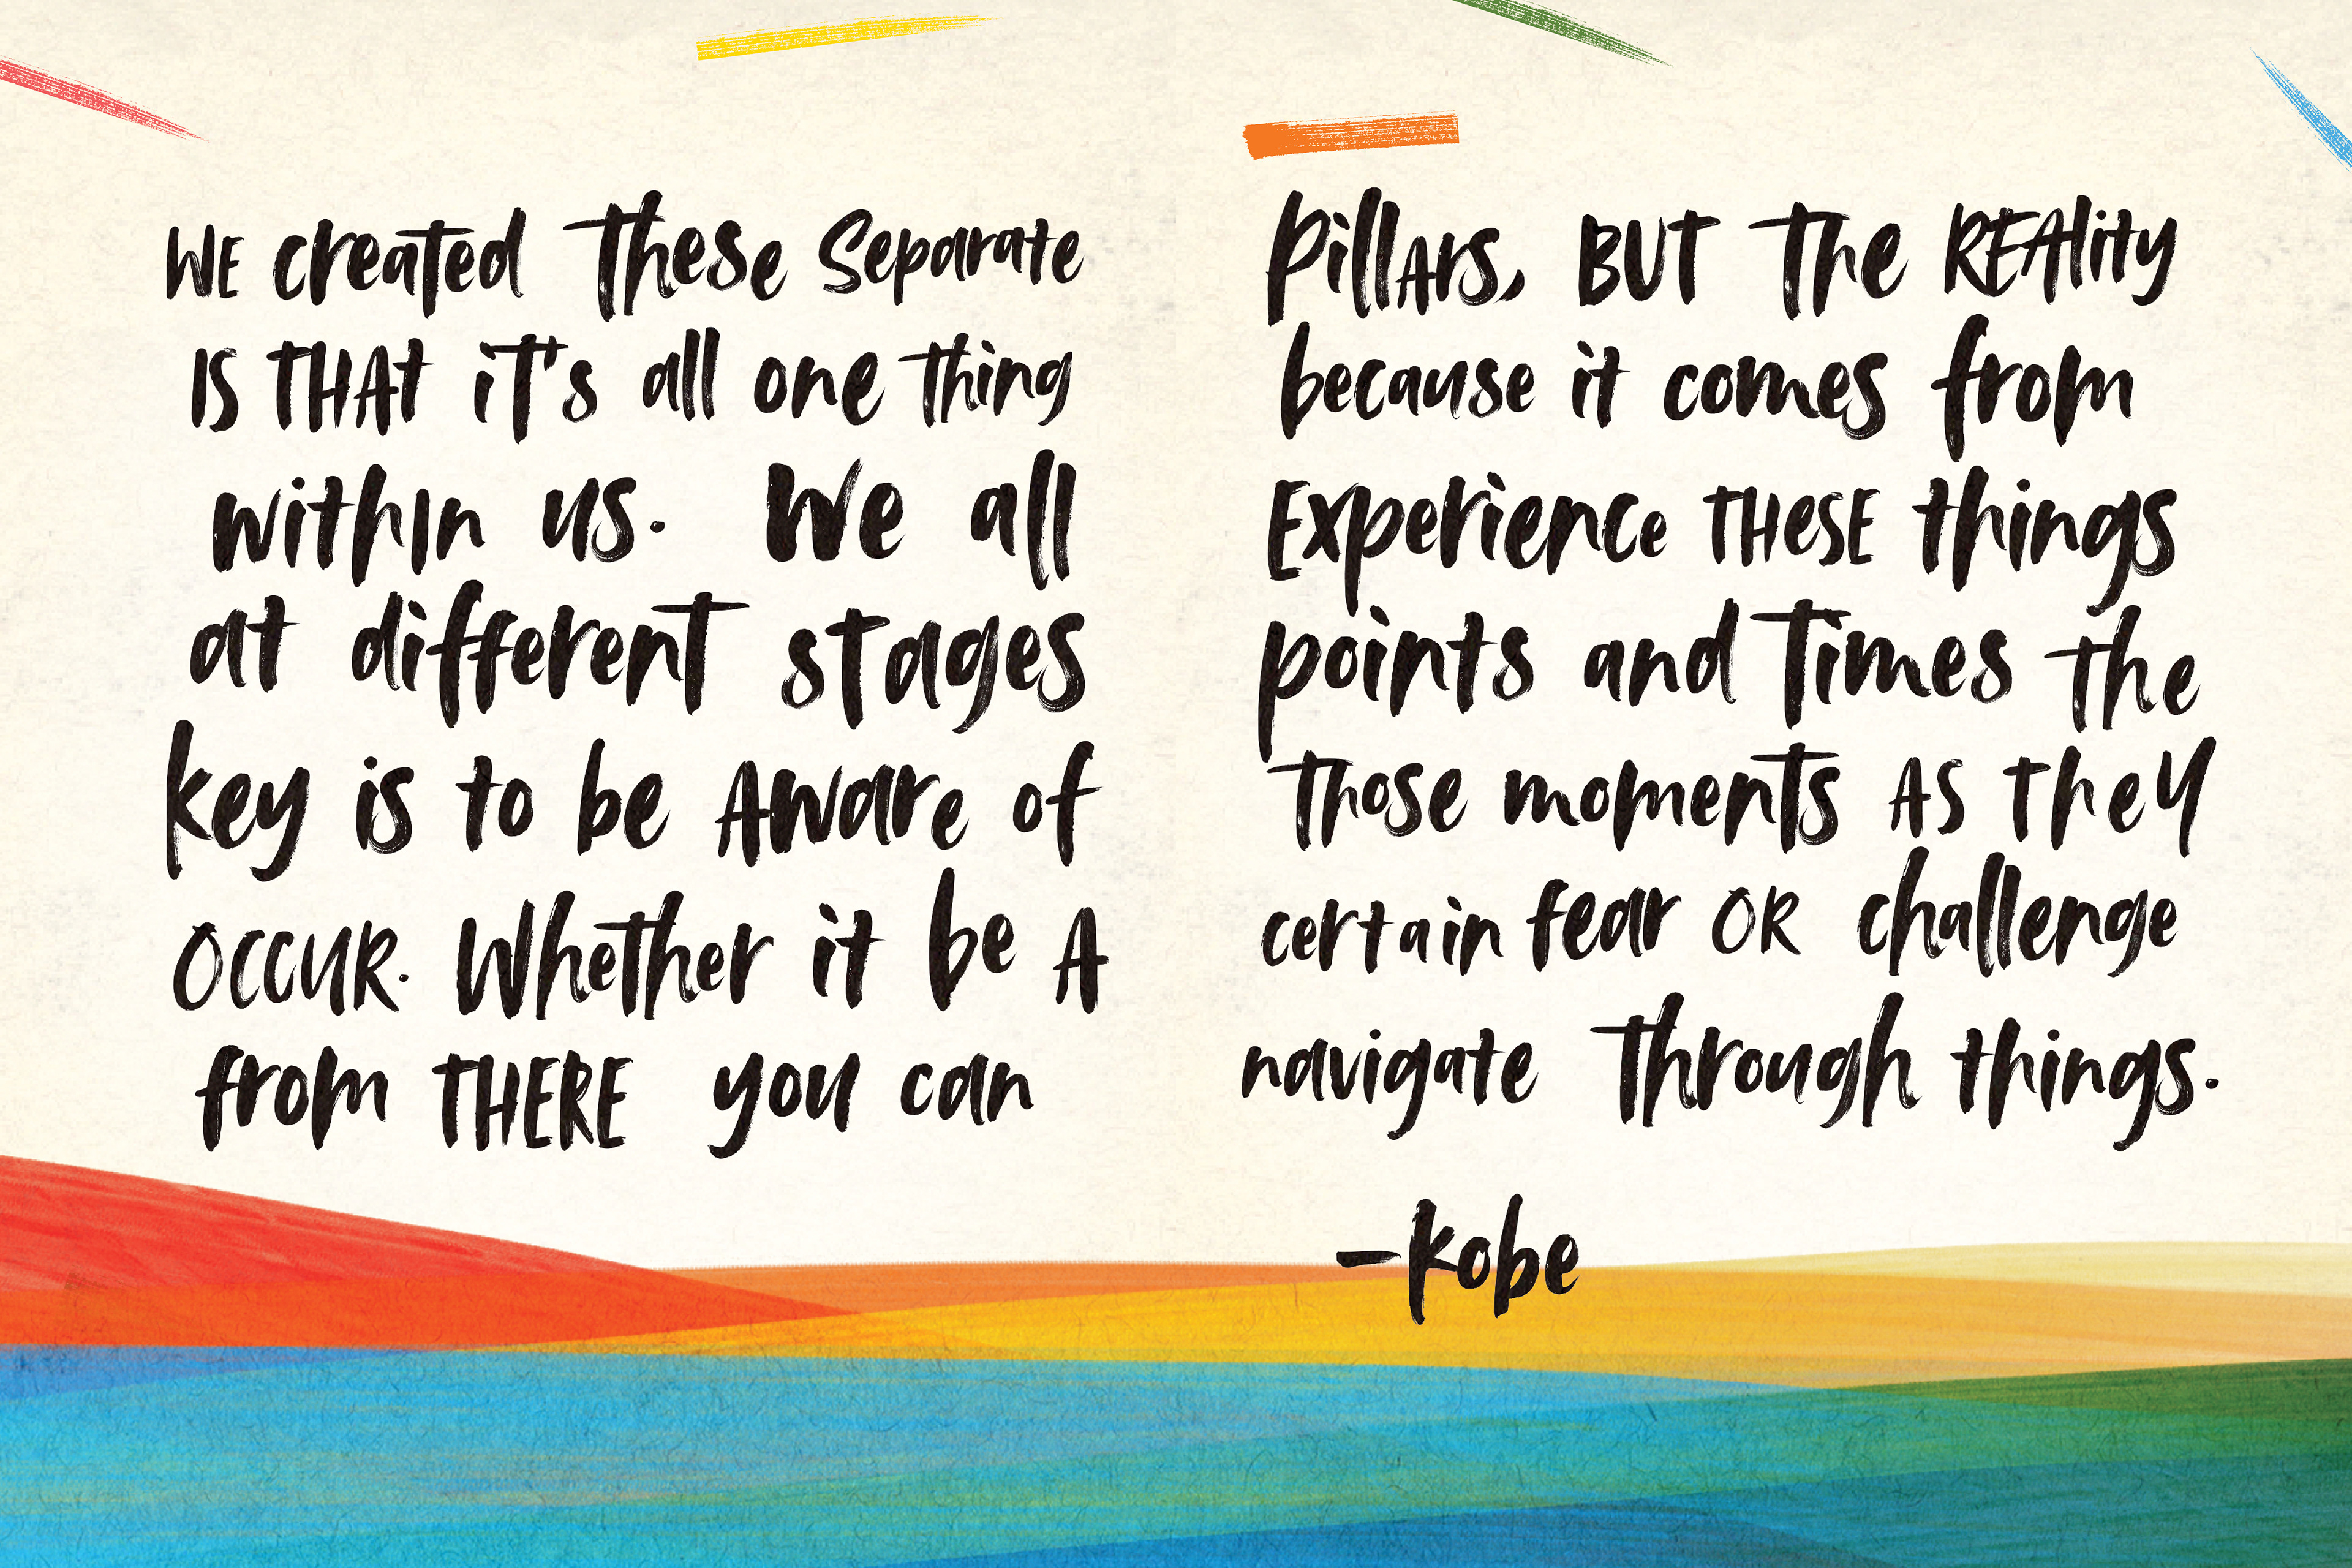 WE created These Separate pillArs, BUT The REAlity
IS THAt iT's all one thing because it comes from
withIn us. We all Experience THeSE things
at different stages points and Times the
key is to be Aware of Those moments AS they
OCCUR. Whether it be A certain fear OR challenge
from THERE you can navigate Through things.
-Kobe